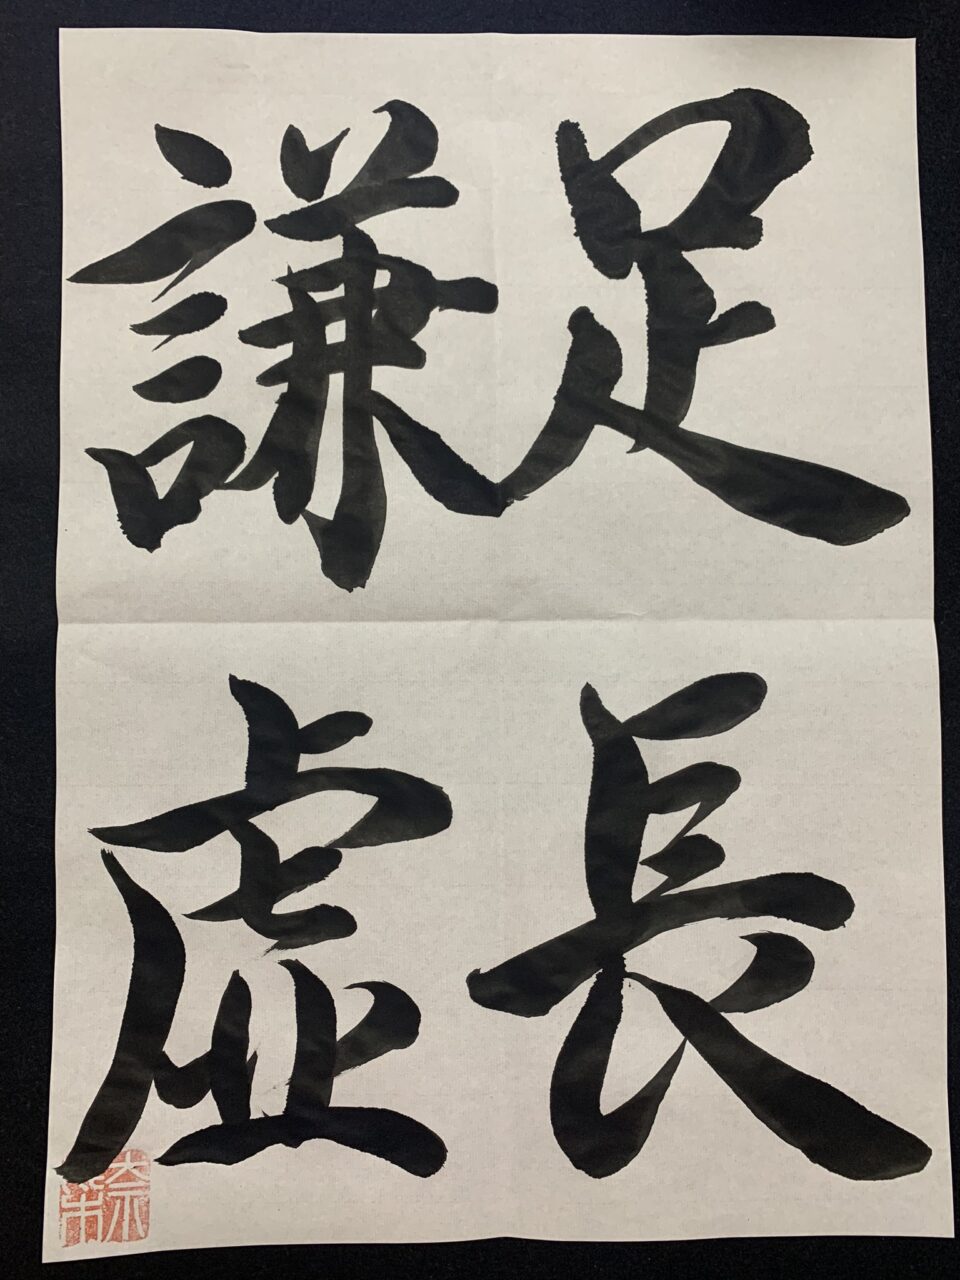 足長
謙虚